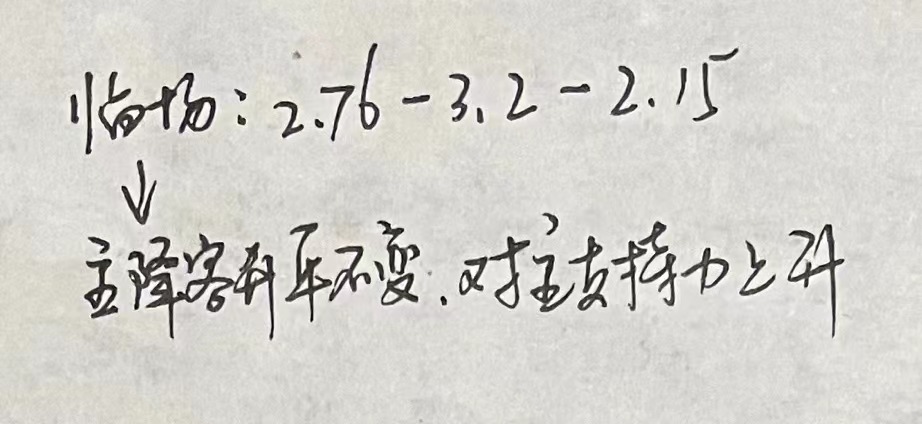 临场：2.76-3.2-2.15
↓
主降客升平不变.对主支持力上升